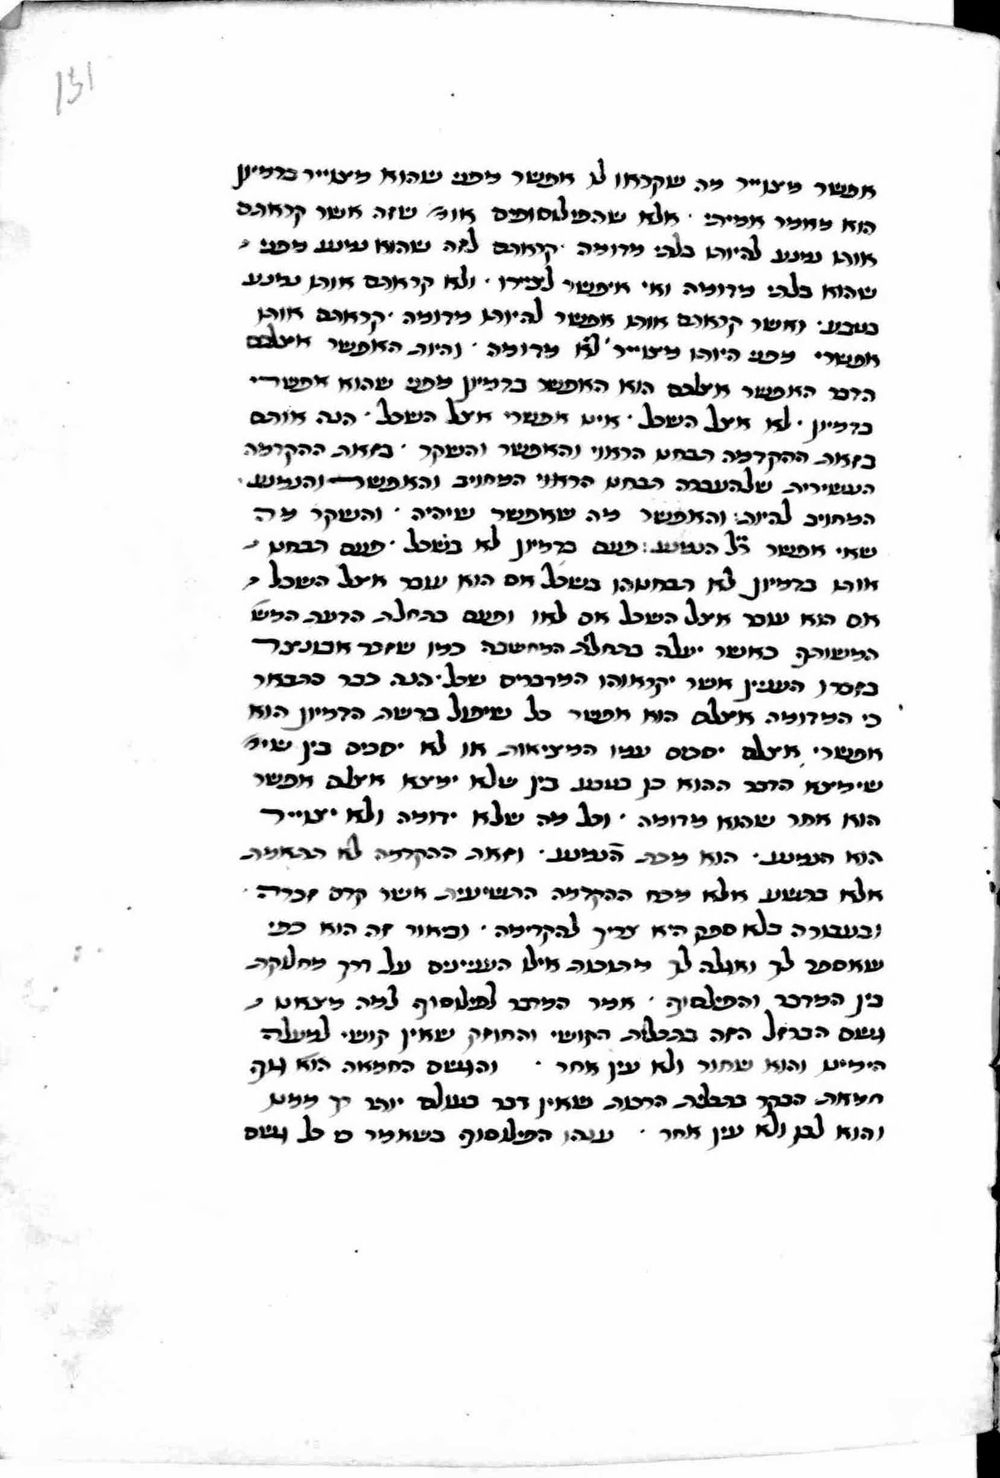 151
אפשר מצוייר מה שקראו לו אפשר מפני שהוא מצוייר בדמיון
הוא מאמר אמיתי · אלא שהפילוסופים אומ' שזה אשר קראתם
אותו נמנע להיותו בלתי מדומה · קראתם לזה שהוא נמנע מפני
שהוא בלתי מדומה ואי איפשר לציירו · ולא קראתם אותו נמנע
בטבע · ואשר קראתם אותו אפשר להיותו מדומה · קראתם אותו
אפשרי מפני היותו מצוייר לא מדומה · והיות האפשר אצלכם
הדבר האפשר אצלכם הוא האפשר בדמיון מפני שהוא אפשרי
בדמיון · לא אצל השכל · אינו אפשרי אצל השכל · הנה אותם
בזאת ההקדמה הבחנו הראוי והאפשר והשקר · בזאת ההקדמה
העשירית שלהעברה הבחנו הראוי המחויב והאפשר והנמנע ·
המחויב להיות : והאפשר מה שאפשר שיהיה · והשקר מה
שאי אפשר ר"ל הנמנע : פעם בדמיון לא בשכל · פעם הבחנו
אותו בדמיון לא הבחנוהו בשכל אם הוא עובר אצל השכל
אם הוא עובר אצל השכל אם לאו ופעם בתחלת הדעת המש
המשותף כאשר יעלה בתחלת המחשבה כמו שזכר אבונצר
בזכרו העניין אשר יקראוהו המדברים שכל · הנה כבר התבאר
כי המדומה אצלם הוא אפשר כל שיפול ברשת הדמיון הוא
אפשרי אצלם יסכים עמו המציאות או לא יסכים בין שימ'
שימצא הדבר ההוא כן בטבע בין שלא ימצא אצלם אפשר
הוא אחר שהוא מדומה · וכל מה שלא ידומה ולא יצוייר
הוא הנמנע · הוא מכת הנמנע · וזאת ההקדמה לא תתאמת
אלא ברשע אלא מכח ההקדמה התשיעית אשר קדם זכרה ·
ובעבורה בלא ספק היא צריך להקדימה · וביאור זה הוא כפי
שאספר לך ואגלה לך מהוכות אילו העניינים על דרך מחלוקת
בין המדבר והפילוסוף · אמר המדבר לפילוסוף למה מצאנו
גשם הברזל הזה בתכלית הקושי והחוזק שאין קושי למעלה
הימינו והוא שחור ולא עין אחר · והגשם החמאה הוא גוף
חמאת הבקר בתכלית הרכות שאין דבר בעולם יותר רך ממנו
והוא לבן ולא עין אחר · ענהו הפילוסוף בשאמר כל גשם